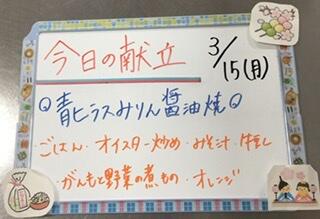 今日の献立
3/15(月)
青ヒラスみりん醤油焼
・ごはん・オイスター炒め・みそ汁・牛乳
・がんもと野菜の煮もの・オレンジ